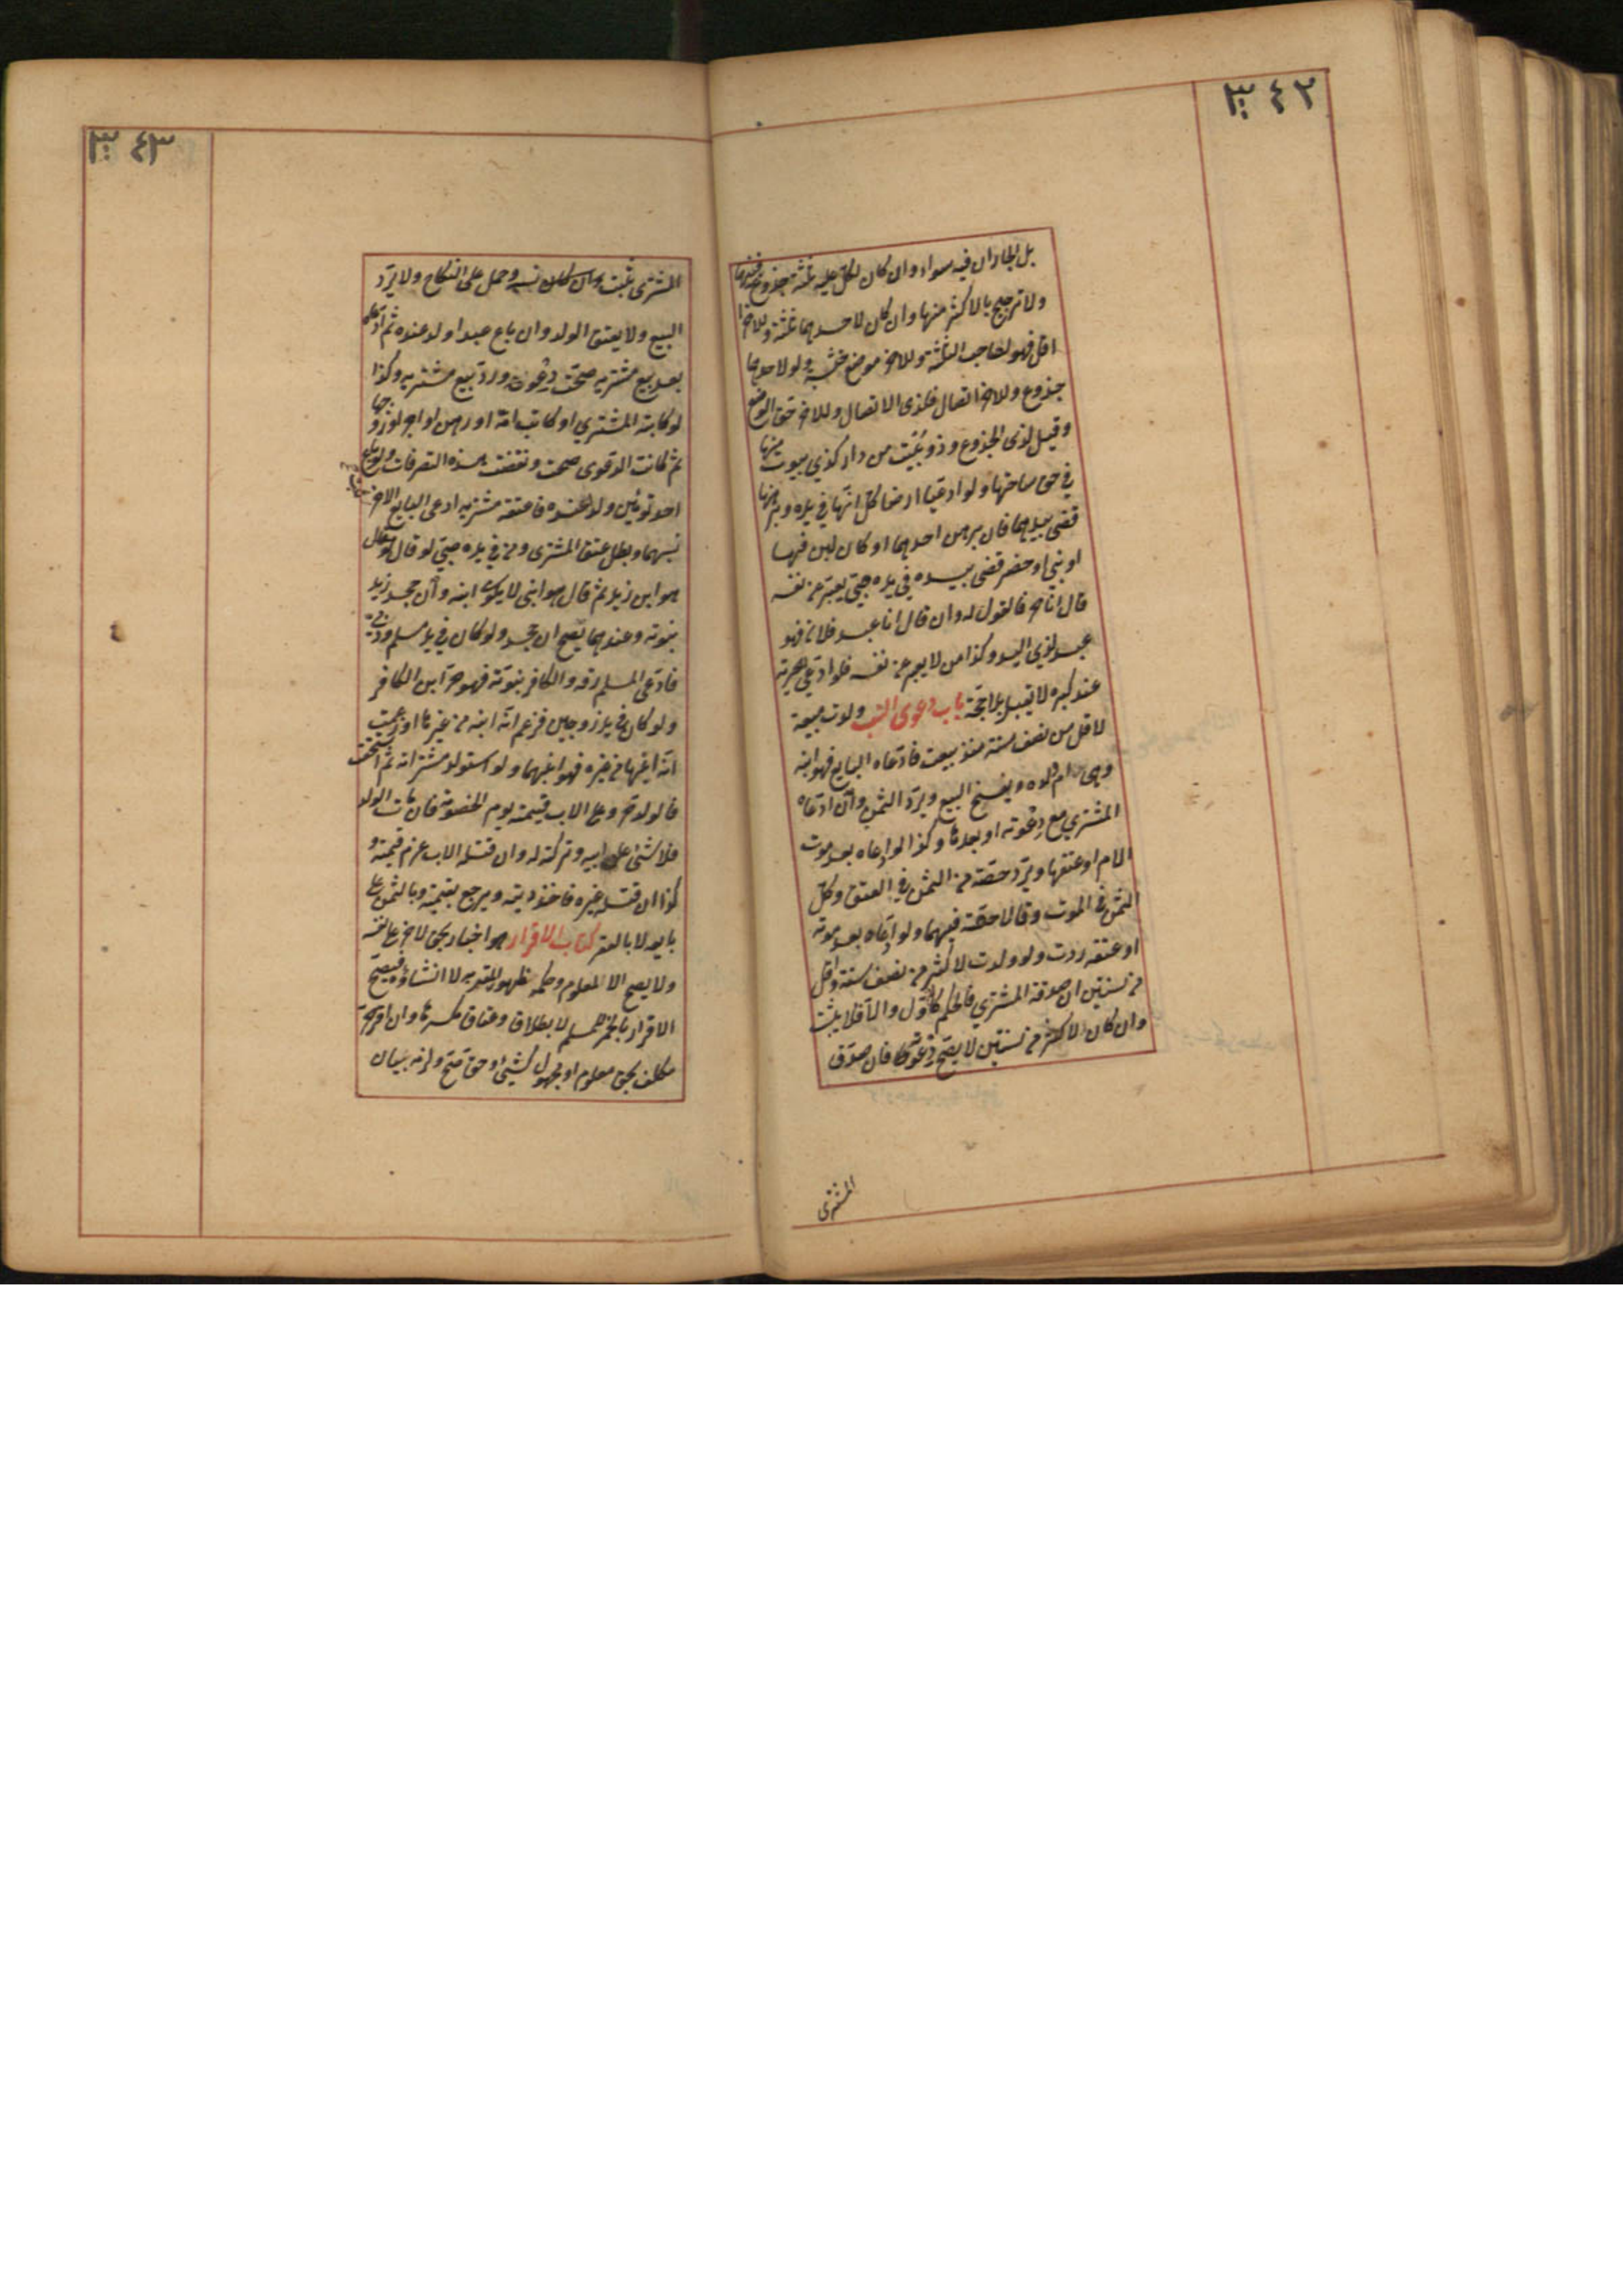 ٣٤٢
بل الجاران فيه سواء وان كان لكل عليه ثلثة جذوع فبينهما
ولا ترجيح بالاكثر منها وان كان لاحدهما ثلثة وللاخر
اقل فهو لصاحب الثلثة وللاخر موضع خشبه ولو لاحدهما
جذوع وللاخر اتصال فلذى الاتصال وللاخر حق الوضع
وقيل لذى الجذوع وذو بيت من دار كذي بيوت منها
في حق ساحتها ولو ادعيا ارضا كل انها في يده وبرهنا
قضى بيدهما فان برهن احدهما او كان لبن فيها
او بنى او حفر قضى بيده في يده صبي يعبر عن نفسه
قال انا حر فالقول له وان قال انا عبد فلان فهو
عبد لذي اليد وكذا من لا يعبر عن نفسه فلو ادعى الحرية
عند كبره لا تقبل بلا حجة باب دعوى النسب ولدت مبيعة
لاقل من نصف سنة منذ بيعت فادعاه البايع فهو ابنه
وهي ام ولده ويفسخ البيع ويرد الثمن وان ادعاه
المشتري مع دعوته او بعدها وكذا لو ادعاه بعد موت
الام او عتقها ويرد حصته من الثمن في العتق وكل
الثمن في الموت وقالا حصته فيهما ولو ادعاه بعد موته
او عتقه ردت ولو ولدت لاكثر من نصف سنة واقل
من سنتين ان صدقه المشتري فالحكم كالاول والا فلا يثبت
وان كان لاكثر من سنتين لا يصح دعوته فان صدق
المشترى
٣٤٣
المشترى ثبت نسبه وحمل على النكاح ولا يرد
البيع ولا يعتق الولد وان باع عبدا ولد عنده ثم ادعاه
بعد بيع مشتريه صحت دعوته ورد بيع مشتريه وكذا
لو كاتبه المشتري او كاتب امه او رهن او اجر او زوجها
ثم كانت الدعوى صحت ونقضت هذه التصرفات ولو باع
احد توئمين ولدا عنده فاعتقه مشتريه ادعى البايع الاخر
نسبهما وبطل عتق المشترى ومن في يده صبي لو قال
هو ابن زيد ثم قال هو ابنى لا يكون ابنه وان جحد زيد
بنوته وعندهما يصح ان جحد ولو كان في يد مسلم وذمي
فادعى المسلم رقه والكافر بنوته فهو حر ابن الكافر
ولو كان في يد زوجين فزعم انه ابنه من غيرها وزعمت
انه ابنها من غيره فهو ابنهما ولو استولد مشتراته ثم استحقت
فالولد حر وعلى الاب قيمته يوم الخصومة فان مات الولد
فلا شئ على ابيه وتركته له وان قتله الاب غرم قيمته و
كذا ان قتله غيره فاخذ ديته ويرجع بقيمته وبالثمن على
بايعه لا بالعقر كتاب الاقرار هو اخبار بحق لاخر على نفسه
ولا يصح الا لمعلوم وحكمه ظهور المقر به لا انشاؤه فيصح
الاقرار بالخمر للمسلم لا بطلاق وعتاق مكرها وان اقر حر
مكلف بحق معلوم او مجهول كشئ او حق صح ولزمه بيان